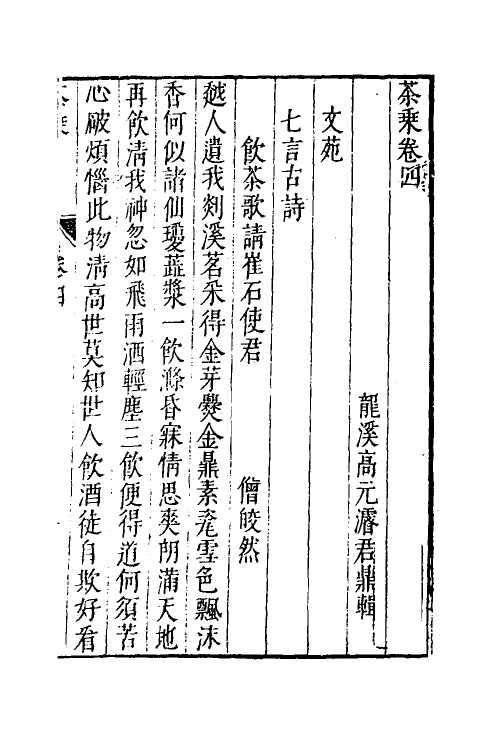 茶乘卷四
龍溪高元濬君鼎輯
文苑
七言古詩
飲茶歌請崔石使君　僧皎然
越人遺我剡溪茗采得金芽爨金鼎素甆雪色飄沫
香何似諸仙瓊蘂漿一飲滌昏寐情思爽朗滿天地
再飲清我神忽如飛雨洒輕塵三飲便得道何須苦
心破煩惱此物清高世莫知世人飲酒徒自欺好看
卷四